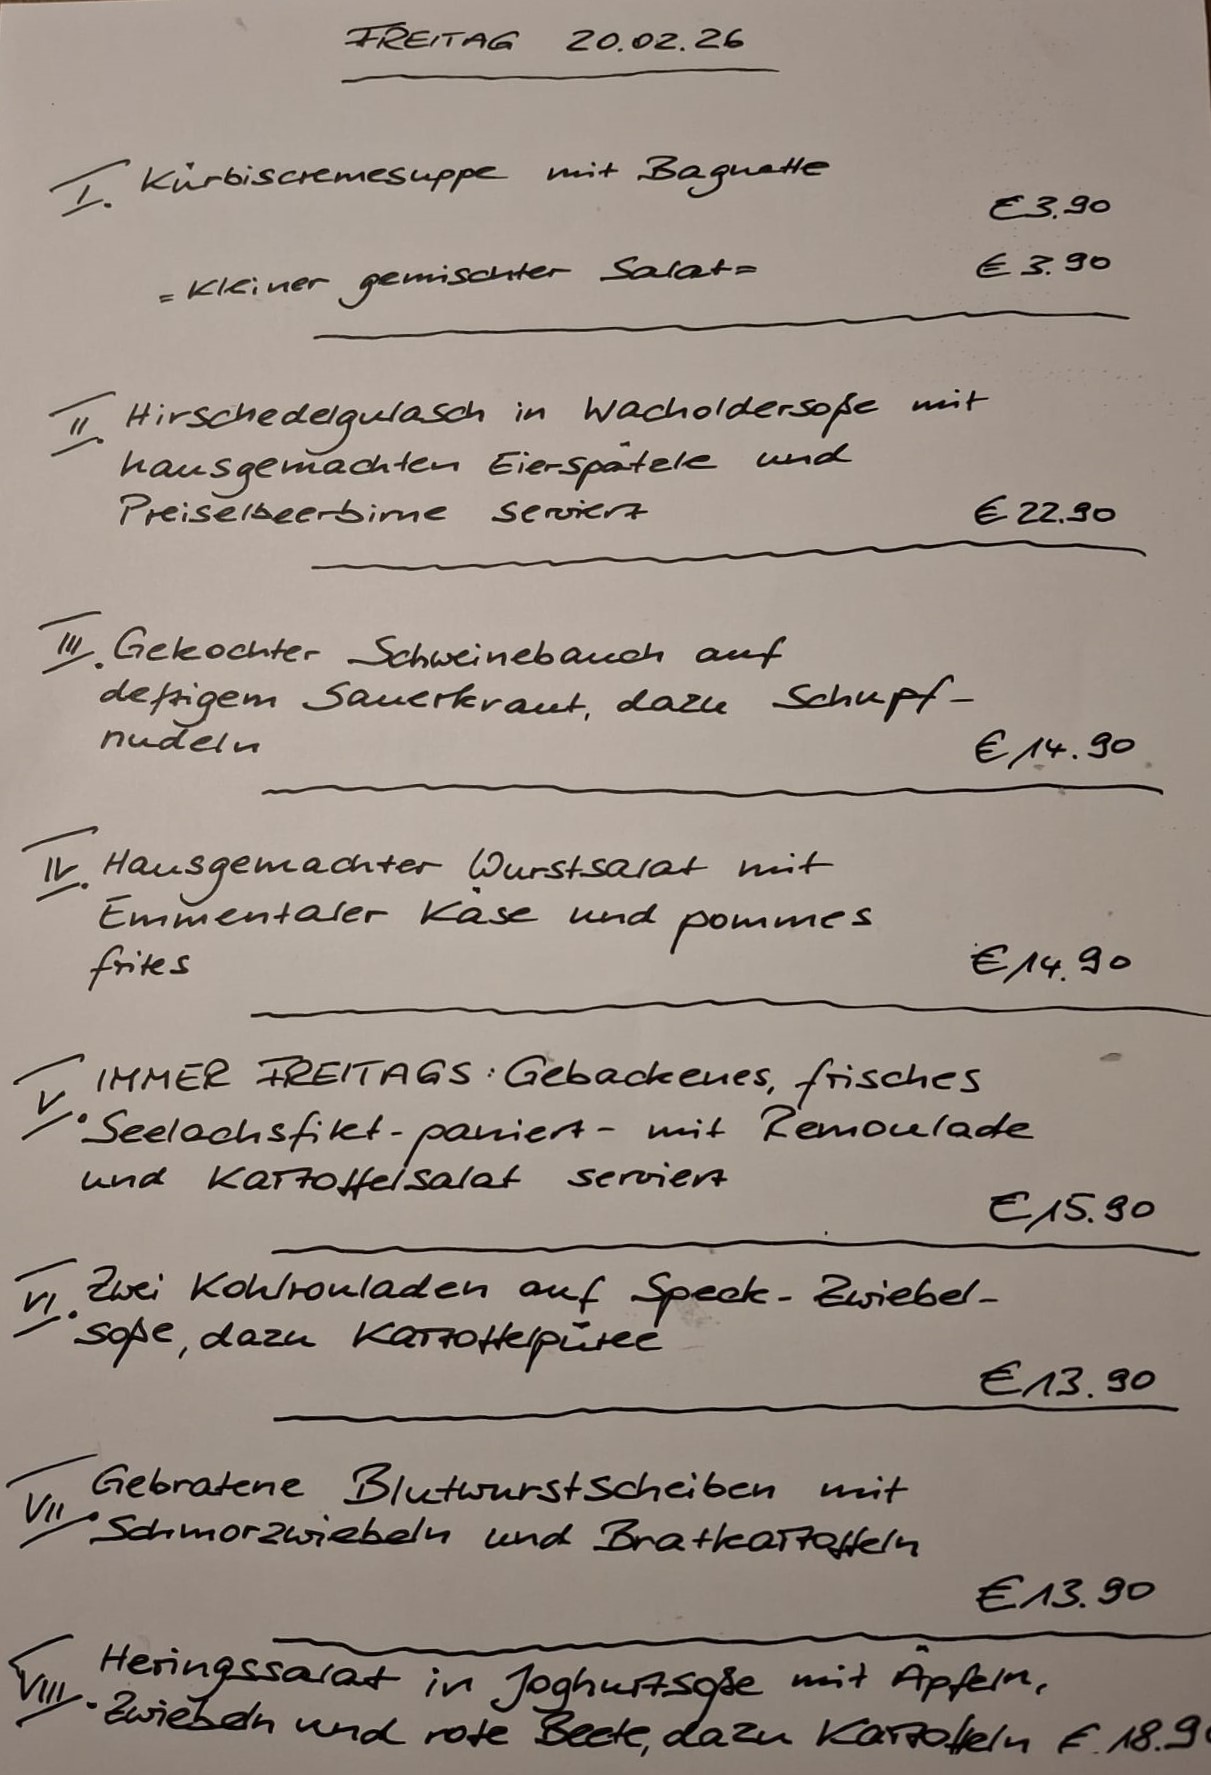 FREITAG 20.02.26
I. Kürbiscremesuppe mit Baguette
€ 3.90
= Kleiner gemischter Salat = € 3.90
II. Hirschedelgulasch in Wacholdersoße mit
hausgemachten Eierspätzle und
Preiselbeerbirne serviert € 22.90
III. Gekochter Schweinebauch auf
deftigem Sauerkraut, dazu Schupf-
nudeln € 14.90
IV. Hausgemachter Wurstsalat mit
Emmentaler Käse und pommes
frites € 14.90
V. IMMER FREITAGS: Gebackenes, frisches
Seelachsfilet - paniert - mit Remoulade
und Kartoffelsalat serviert
€ 15.90
VI. Zwei Kohlrouladen auf Speck-Zwiebel-
soße, dazu Kartoffelpüree
€ 13.90
VII. Gebratene Blutwurstscheiben mit
Schmorzwiebeln und Bratkartoffeln
€ 13.90
VIII. Heringssalat in Joghurtsoße mit Äpfeln,
Zwiebeln und rote Beete, dazu Kartoffeln € 18.90